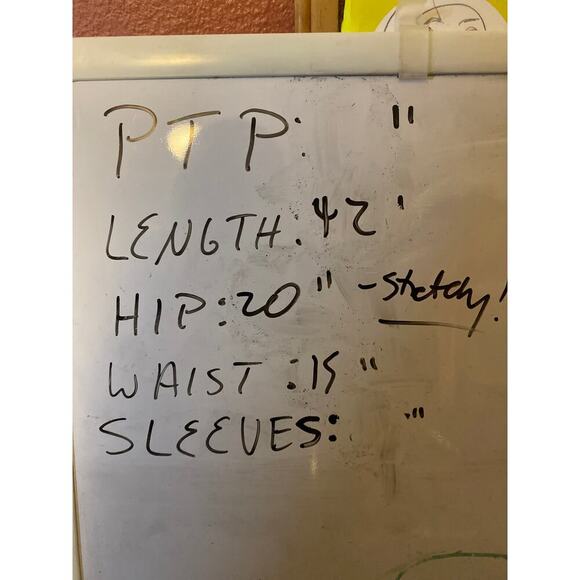 PTP: "
LENGTH: 42'
HIP: 20" - stretchy!
WAIST: 15"
SLEEVES: "